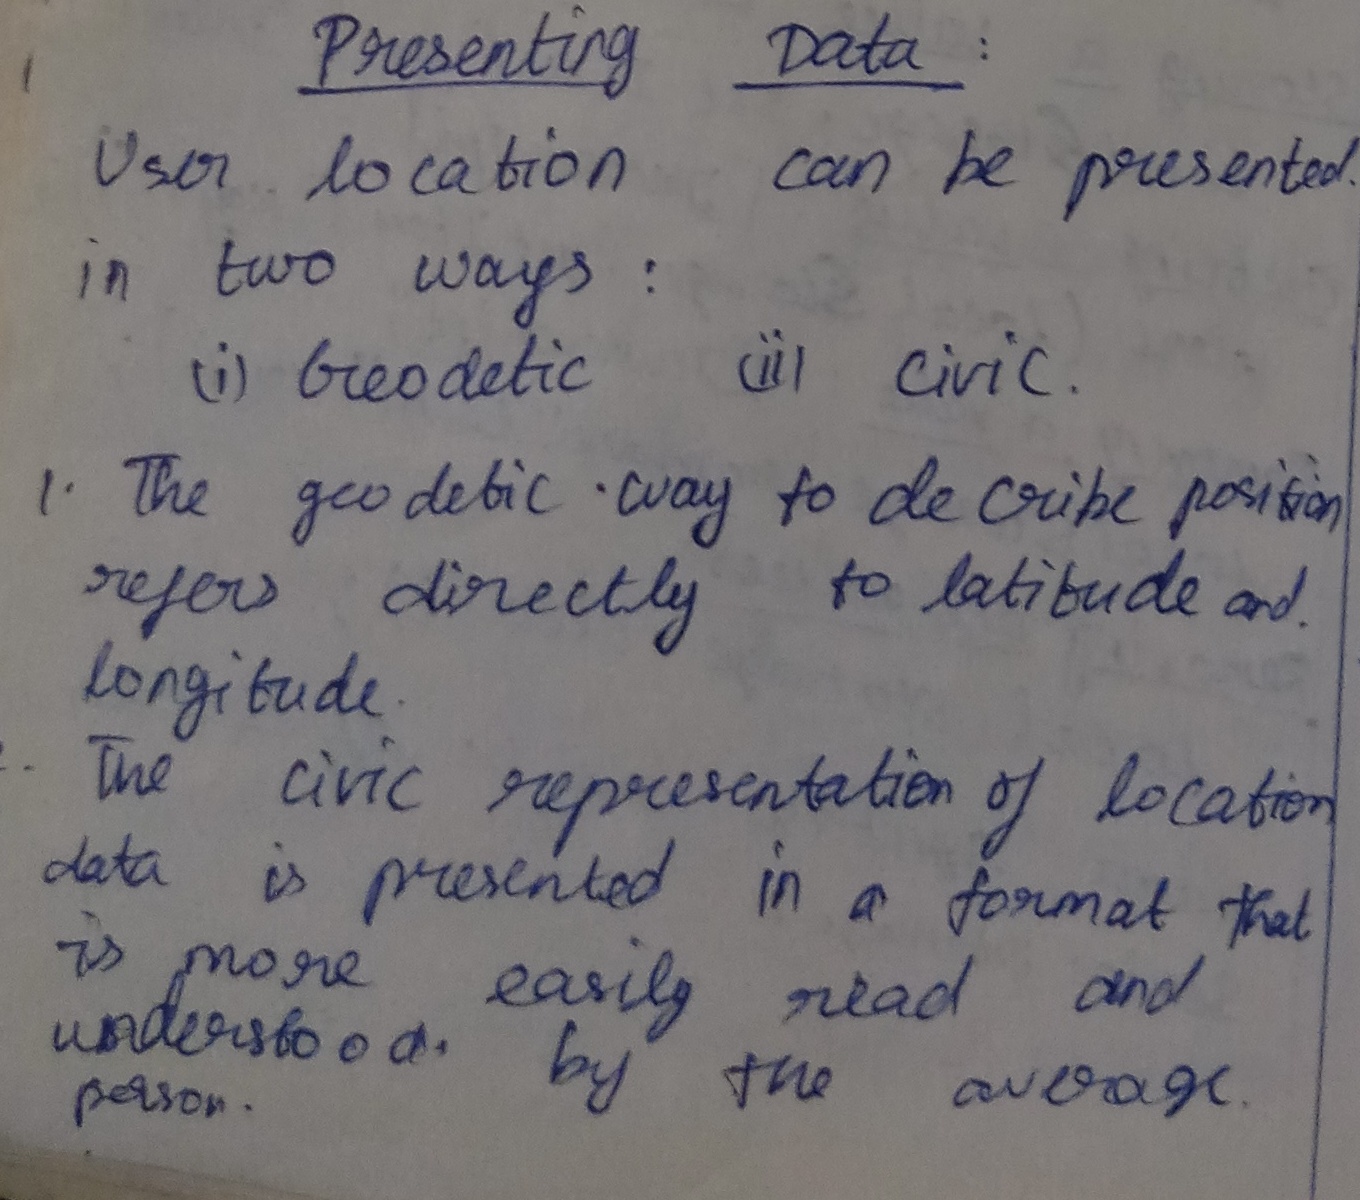 Presenting Data :
User location can be presented.
in two ways :
(i) Geodetic (ii) civic.
1. The geodetic way to decribe position
refers directly to latitude and.
longitude.
2. The civic representation of location
data is presented in a format that
is more easily read and
understood. by the average.
person.